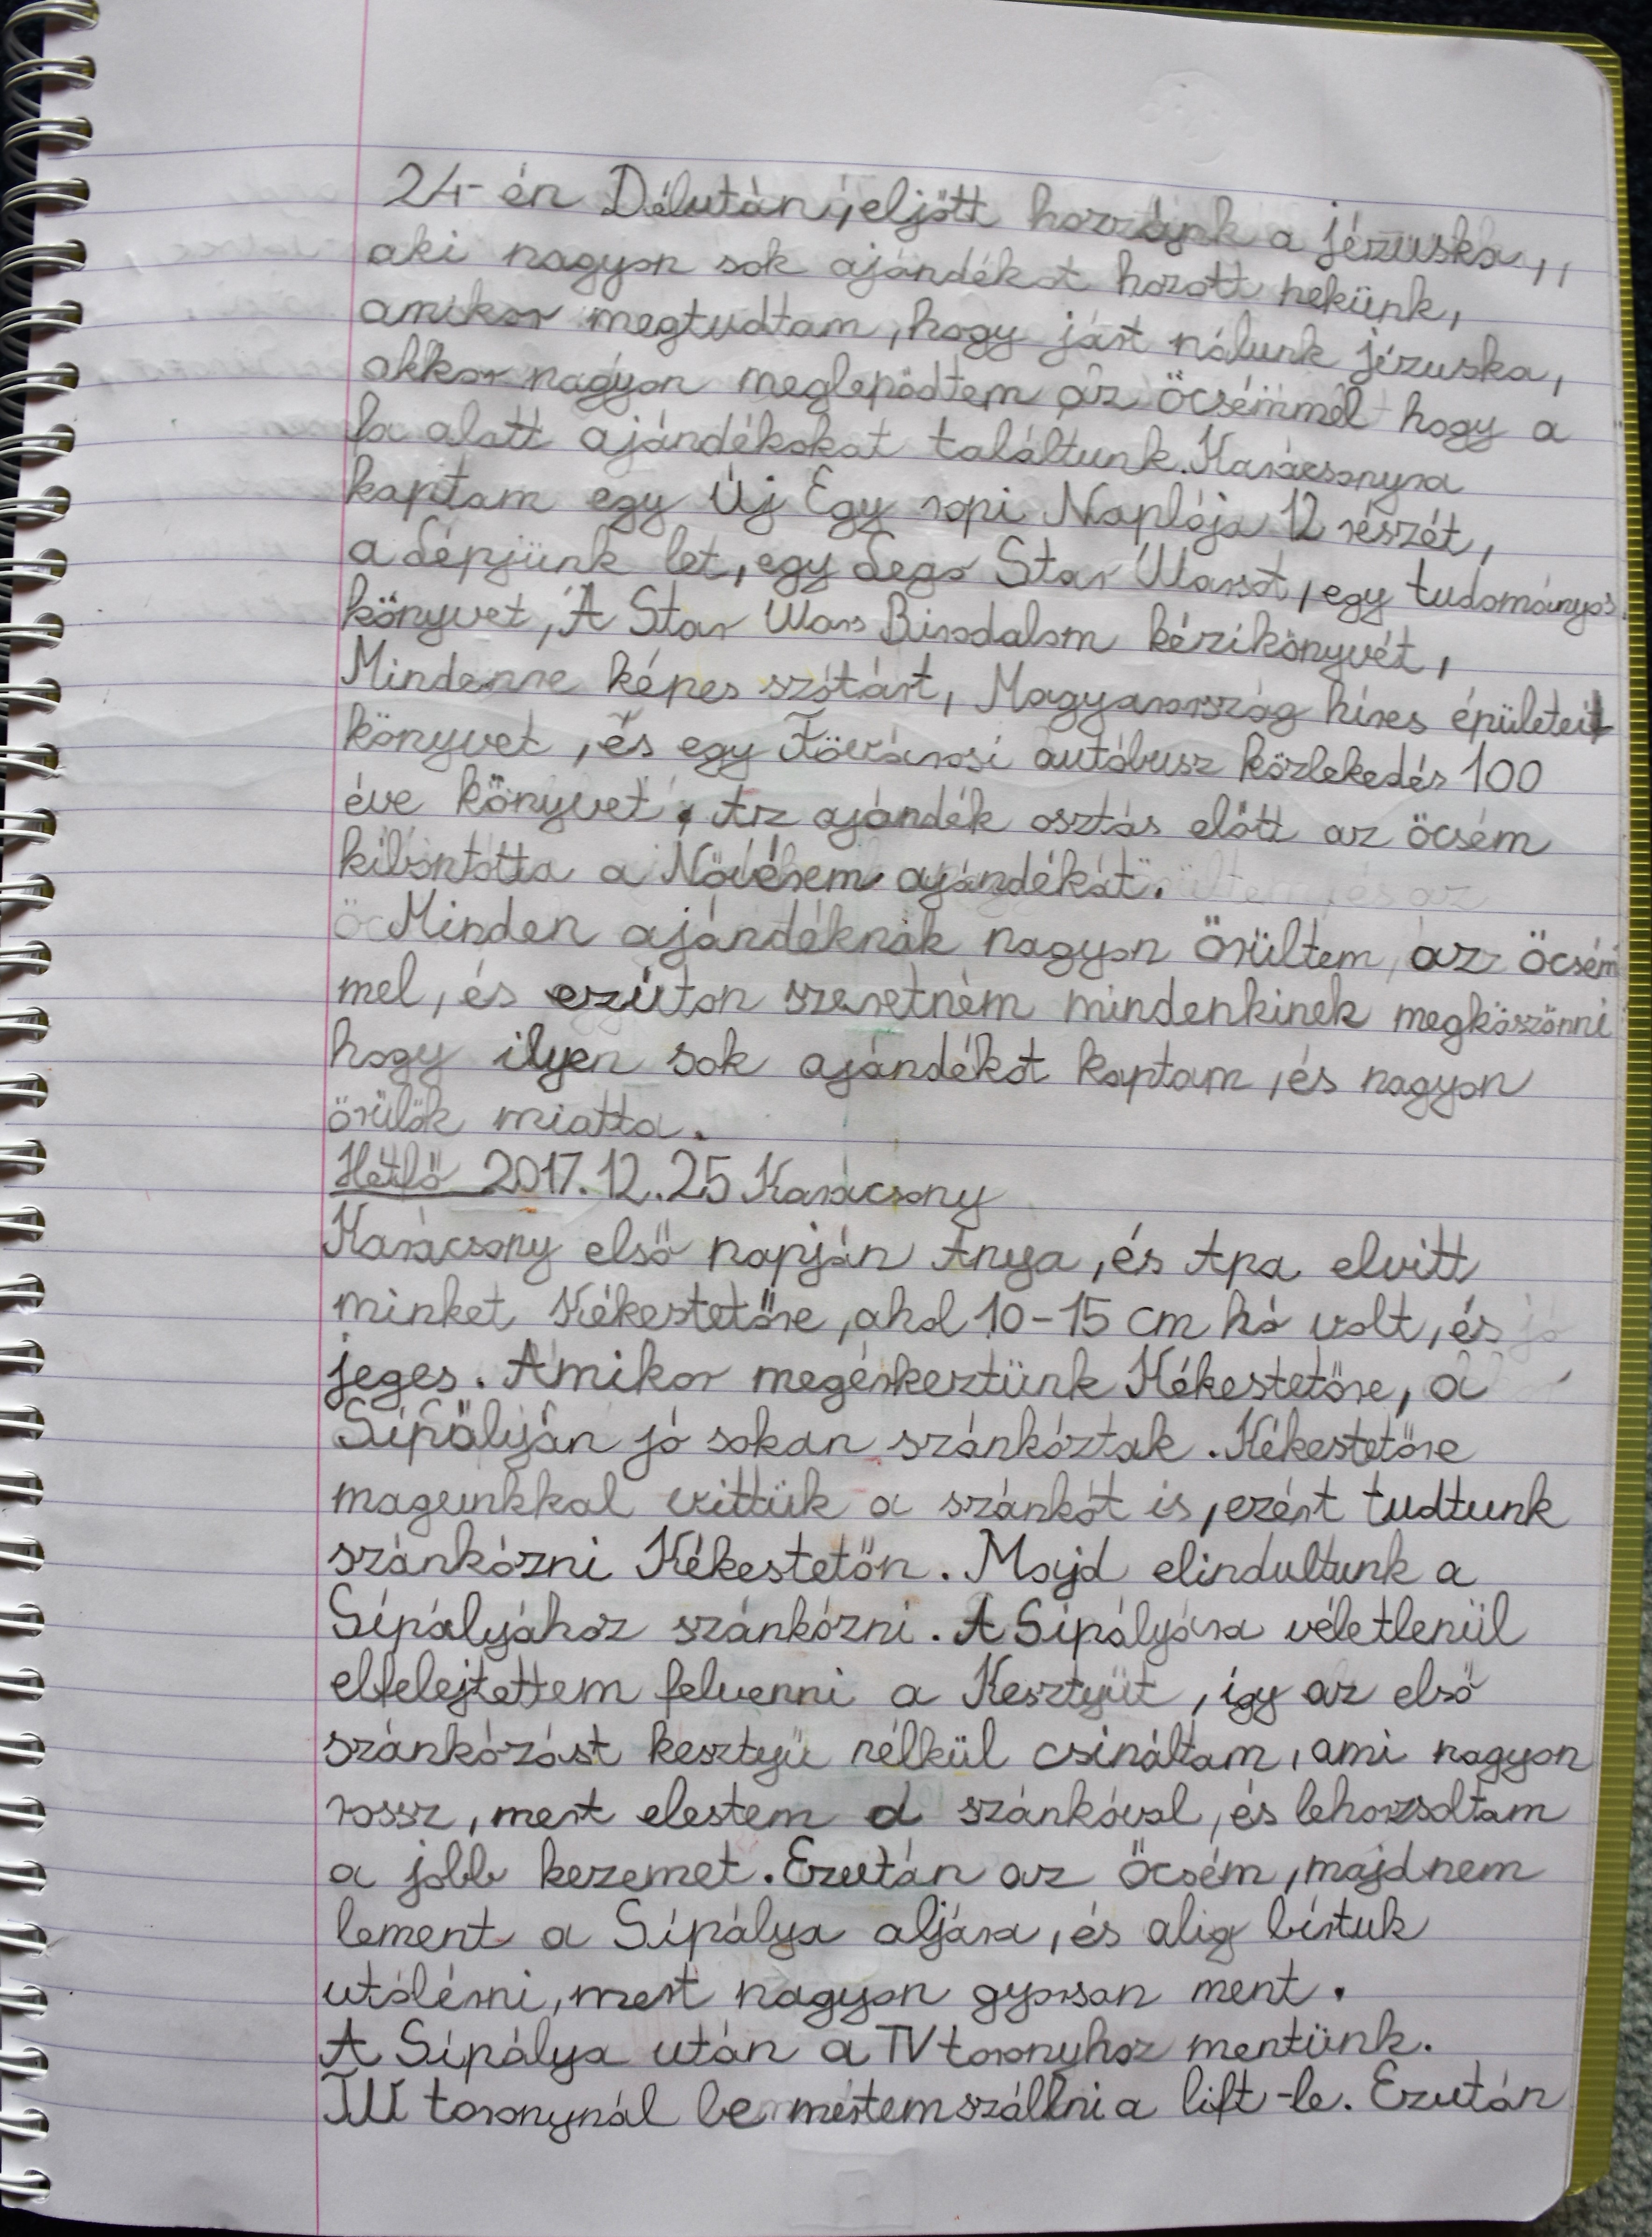 24-én Délután, eljött hozzánk a jézuska,,
aki nagyon sok ajándékot hozott nekünk,
amikor megtudtam, hogy járt nálunk jézuska,
akkor nagyon meglepődtem az öcsémmel hogy a
fa alatt ajándékokat találtunk. Karácsonyra
kaptam egy Új Egy ropi Naplója 12 részét,
a Lépjünk let, egy Lego Star Warst, egy tudományos
könyvet, A Star Wars Birodalom kézikönyvét,
Mindenre képes szótárt, Magyarország híres épületeit
könyvet, és egy Fővárosi autóbusz közlekedés 100
éve könyvet. Az ajándék osztás előtt az öcsém
kibontotta a Nővérem ajándékát.
Minden ajándéknak nagyon örültem az öcsém
mel, és ezúton szeretném mindenkinek megköszönni
hogy ilyen sok ajándékot kaptam, és nagyon
örülök miatta.
Hétfő 2017.12.25 Karácsony
Karácsony első napján Anya, és Apa elvitt
minket Kékestetőre, ahol 10-15 cm hó volt, és
jeges. Amikor megérkeztünk Kékestetőre, a
Sípályán jó sokan szánkóztak. Kékestetőre
magunkkal vittük a szánkót is, ezért tudtunk
szánkózni Kékestetőn. Majd elindultunk a
Sípályához szánkózni. A Sípályára véletlenül
elfelejtettem felvenni a Kesztyűt, így az első
szánkózást kesztyű nélkül csináltam, ami nagyon
rossz, mert elestem a szánkóval, és lehorzsoltam
a jobb kezemet. Ezután az Öcsém, majdnem
lement a Sípálya aljára, és alig bírtuk
utólérni, mert nagyon gyorsan ment.
A Sípálya után a TV toronyhoz mentünk.
TW toronynál be mertem szállni a lift-be. Ezután